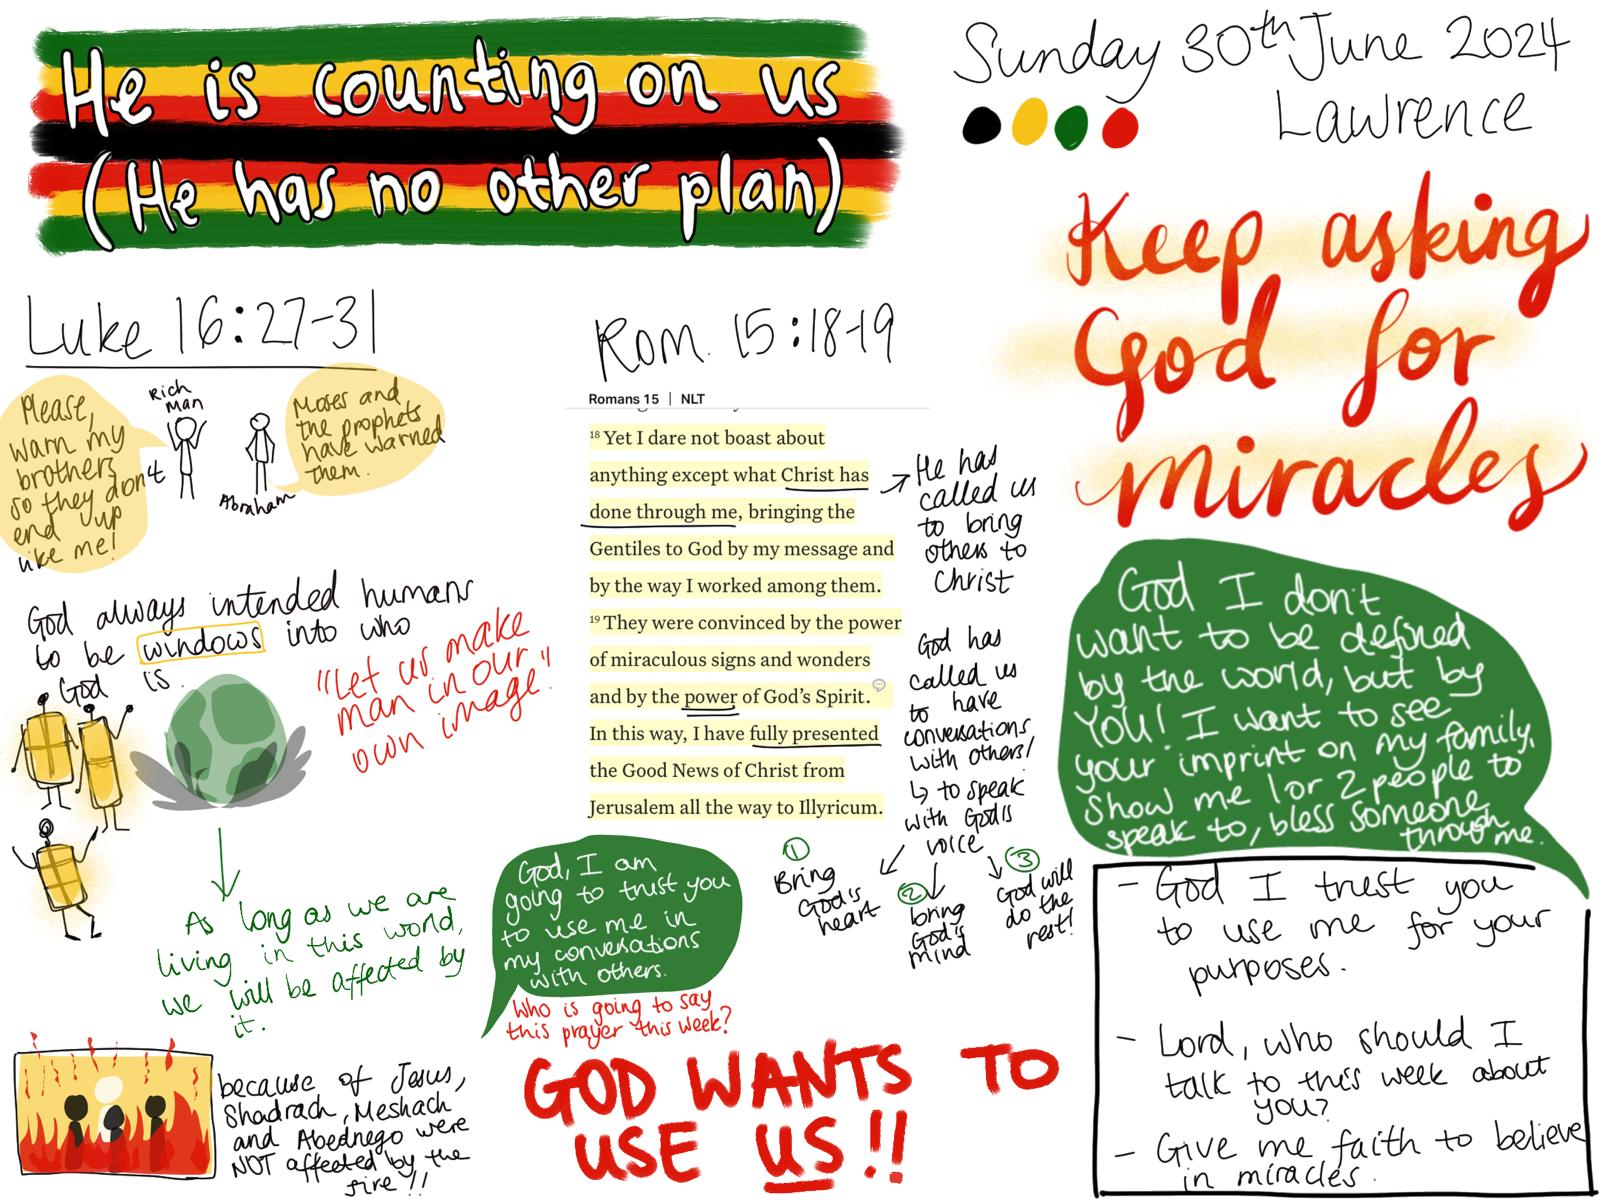 He is counting on us
(He has no other plan)
Sunday 30th June 2024
Lawrence
Keep asking
God for
miracles
Luke 16:27-31
Please,
warn my
brothers
so they don't
end up
like me!
Rich
Man
Abraham
Moses and
the prophets
have warned
them.
God always intended humans
to be windows into who
God is.
"Let us make
man in our
own image."
As long as we are
living in this world,
we will be affected by
it.
because of Jesus,
Shadrach, Meshach
and Abednego were
NOT affected by the
fire!!
Rom. 15:18-19
Romans 15 | NLT
18 Yet I dare not boast about
anything except what Christ has
done through me, bringing the
Gentiles to God by my message and
by the way I worked among them.
19 They were convinced by the power
of miraculous signs and wonders
and by the power of God's Spirit.
In this way, I have fully presented
the Good News of Christ from
Jerusalem all the way to Illyricum.
He has
called us
to bring
others to
Christ
God has
called us
to have
conversations
with others!
↳ to speak
with God's
voice
1
Bring
God's
heart
2
bring
God's
mind
3
God will
do the
rest!
God, I am
going to trust you
to use me in
my conversations
with others.
Who is going to say
this prayer this week?
GOD WANTS TO
USE US!!
God I don't
want to be defined
by the world, but by
YOU! I want to see
your imprint on my family,
show me 1 or 2 people to
speak to, bless someone
through me.
- God I trust you
to use me for your
purposes.
- Lord, who should I
talk to this week about
you?
- Give me faith to believe
in miracles.